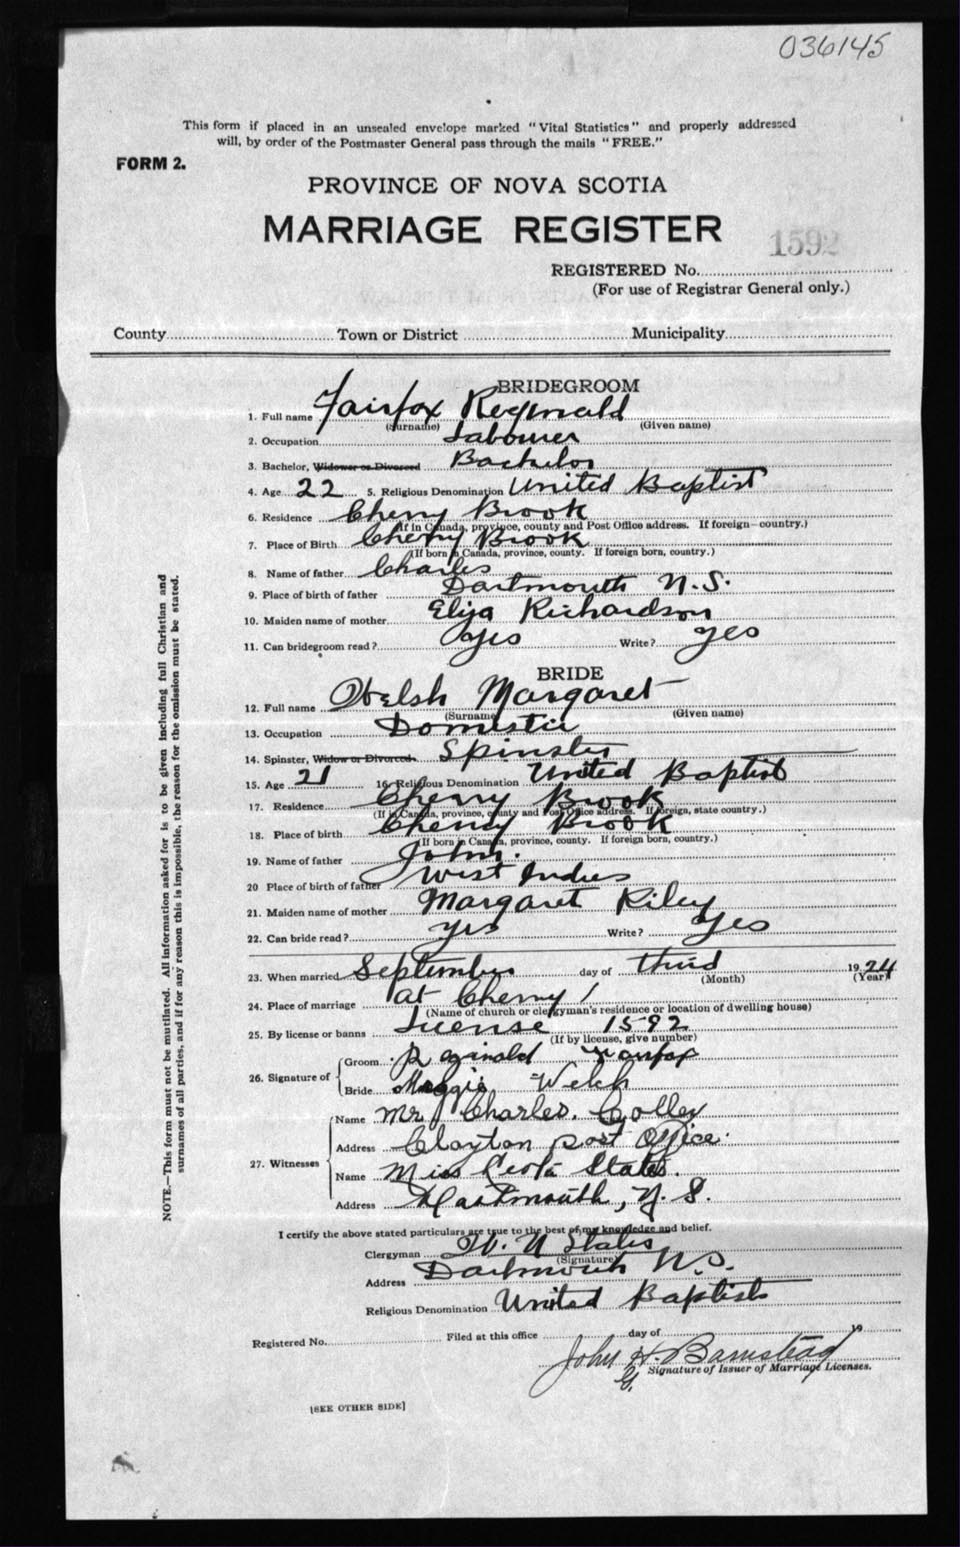 036145
This form if placed in an unsealed envelope marked "Vital Statistics" and properly addressed
will, by order of the Postmaster General pass through the mails "FREE."
FORM 2.
PROVINCE OF NOVA SCOTIA
MARRIAGE REGISTER
1592
REGISTERED No.
(For use of Registrar General only.)
County Town or District Municipality
BRIDEGROOM
1. Full name Fairfox Reginald
(Surname) (Given name)
2. Occupation Labourer
3. Bachelor, Widower or Divorced Bachelor
4. Age 22 5. Religious Denomination United Baptist
6. Residence Cherry Brook
(If in Canada, province, county and Post Office address. If foreign—country.)
7. Place of Birth Cherry Brook
(If born in Canada, province, county. If foreign born, country.)
8. Name of father Charles
9. Place of birth of father Dartmouth N.S.
10. Maiden name of mother Eliza Richardson
11. Can bridegroom read? Yes Write? yes
BRIDE
12. Full name Welsh Margaret
(Surname) (Given name)
13. Occupation Domestic
14. Spinster, Widow or Divorced. Spinster
15. Age 21 16. Religious Denomination United Baptist
17. Residence Cherry Brook
(If in Canada, province, county and Post Office address. If foreign, state country.)
18. Place of birth Cherry Brook
(If born in Canada, province, county. If foreign born, country.)
19. Name of father John.
20 Place of birth of father West Indies
21. Maiden name of mother Margaret Riley
22. Can bride read? yes Write? Yes
23. When married September day of third 1924
(Month) (Year)
24. Place of marriage at Cherry
(Name of church or clergyman's residence or location of dwelling house)
25. By license or banns License 1592
(If by license, give number)
26. Signature of
Groom Reginald Fairfax
Bride Maggie Welch
27. Witnesses
Name Mr Charles. Colley
Address Clayton post Office.
Name Miss Ceola States.
Address Dartmouth, N. S.
I certify the above stated particulars are true to the best of my knowledge and belief.
Clergyman W. N States
(Signature)
Address Dartmouth N.S.
Religious Denomination United Baptist
Registered No. Filed at this office day of 19
John H. Barnstead
Signature of Issuer of Marriage Licenses.
[SEE OTHER SIDE]
NOTE.—This form must not be mutilated. All information asked for is to be given including full Christian and
surnames of all parties, and if for any reason this is impossible, the reason for the omission must be stated.